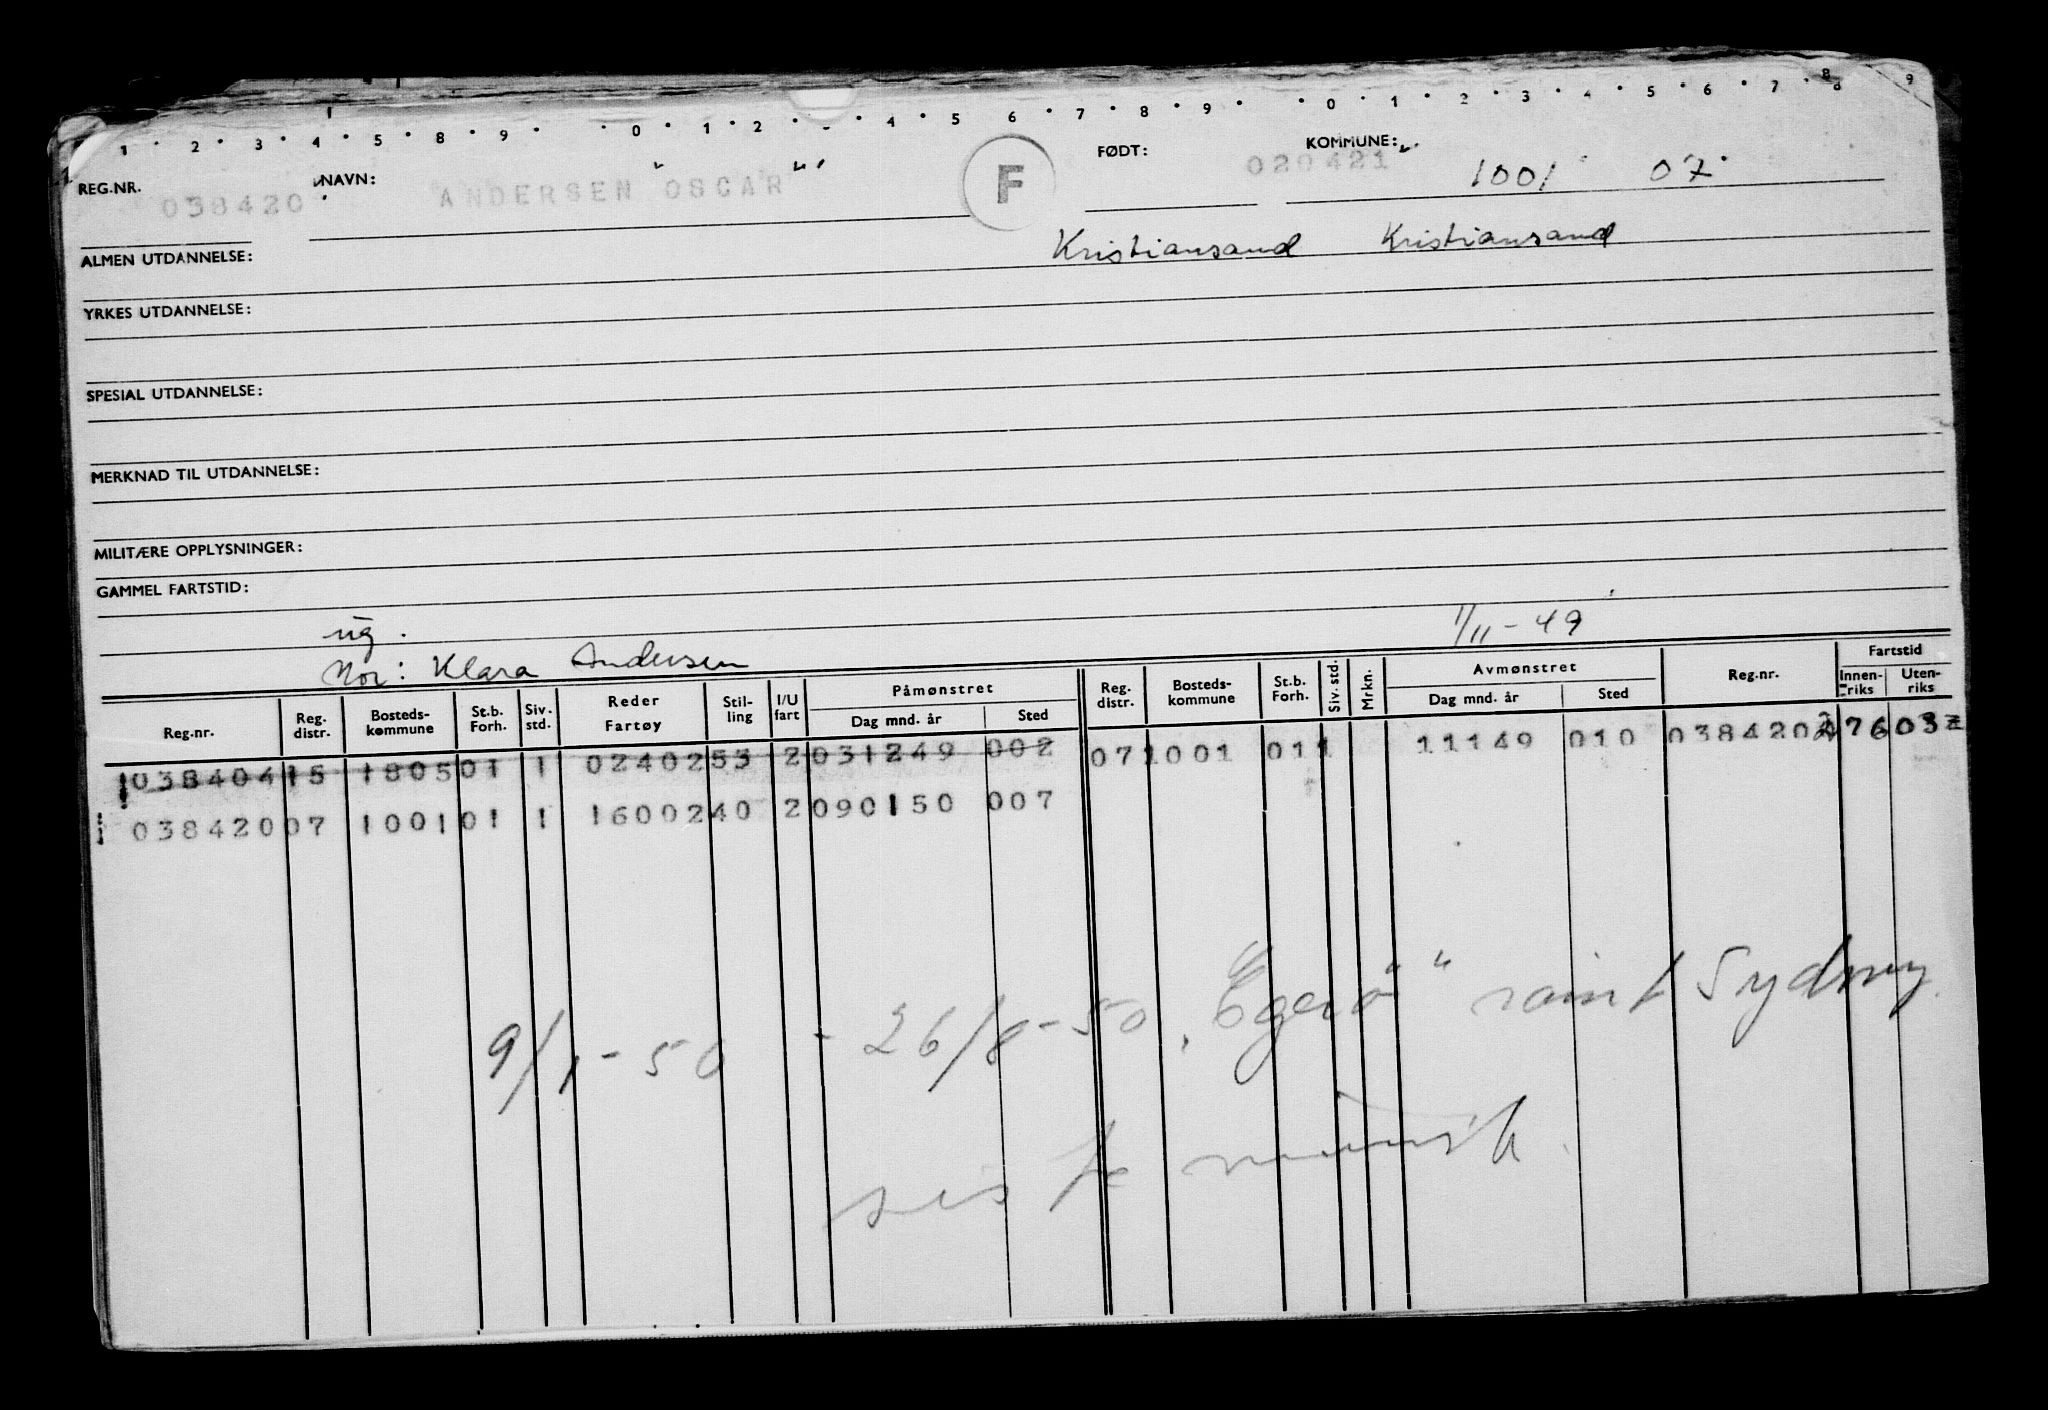 1 2 3 4 5 8 9 0 1 2 4 5 6 7 8 9 0 1 2 3 4 5 6 7 8 9
REG.NR. 038420 NAVN: ANDERSEN OSCAR F FØDT: 020421 KOMMUNE: 1001 07
ALMEN UTDANNELSE: Kristiansand Kristiansand
YRKES UTDANNELSE:
SPESIAL UTDANNELSE:
MERKNAD TIL UTDANNELSE:
MILITÆRE OPPLYSNINGER:
GAMMEL FARTSTID:
ug. 1/11-49
Mor: Klara Andersen
Reg.nr. Reg. distr. Bosteds-kommune St.b. Forh. Siv. std. Reder Fartøy Stil-ling I/U fart Påmønstret Dag mnd. år Sted Reg. distr. Bosteds-kommune St.b. Forh. Siv. std. Mrkn. Avmønstret Dag mnd. år Sted Reg.nr. Fartstid Innen-riks Uten-riks
038404 15 1805 01 1 02402 53 2 031249 002 07 1001 01 1 11149 010 038420
038420 07 1001 01 1 16002 40 2 090150 007
9/1-50 - 26/8-50 "Egerö" rømt Sydney
siste mönstr.